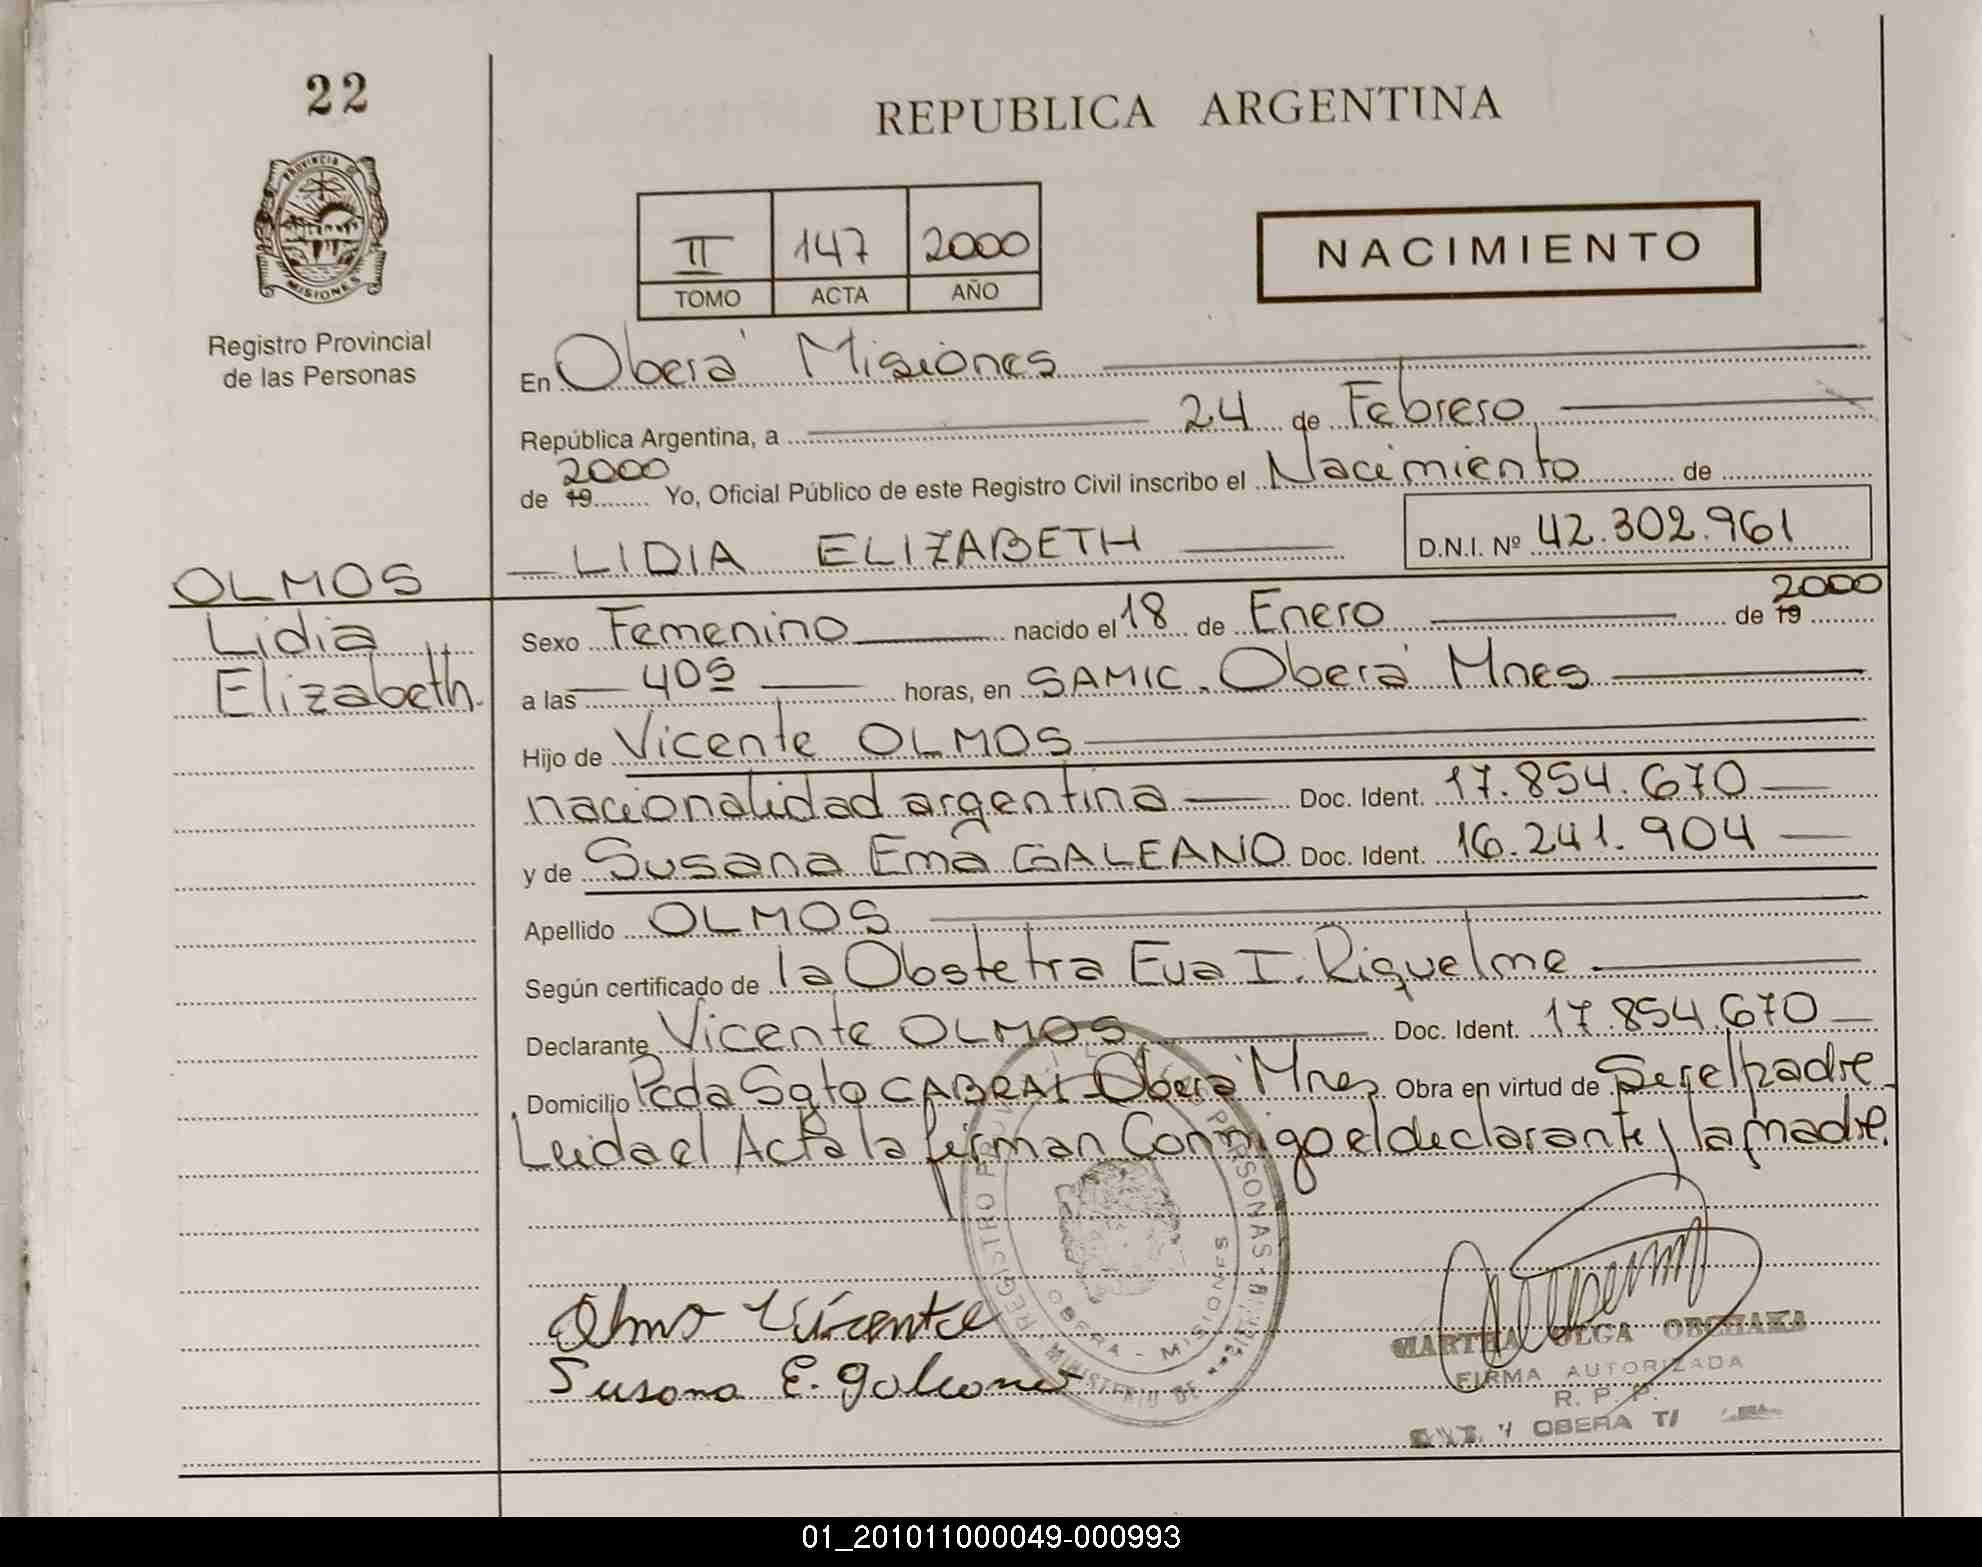 22
REPUBLICA ARGENTINA
PROVINCIA
MISIONES
Registro Provincial
de las Personas
II 147 2000
TOMO ACTA AÑO
NACIMIENTO
En Oberá Misiones
República Argentina, a 24 de Febrero
2000
de 19 Yo, Oficial Público de este Registro Civil inscribo el Nacimiento de
LIDIA ELIZABETH D.N.I. Nº 42.302.961
OLMOS
Lidia
Elizabeth.
2000
Sexo Femenino nacido el 18 de Enero de 19
a las 405 horas, en SAMIC. Oberá Mnes
Hijo de Vicente OLMOS
nacionalidad argentina Doc. Ident. 17.854.670
y de Susana Ema GALEANO Doc. Ident. 16.241.904
Apellido OLMOS
Según certificado de la Obstetra Eva I. Riquelme
Declarante Vicente OLMOS Doc. Ident. 17.854.670
Domicilio Pcda Sgto CABRAL Oberá Mnes Obra en virtud de Ser el padre
Leida el Acta la firman Conmigo el declarante y la madre.
REGISTRO PERSONAS
OBERA - MISIONES
MINISTERIO DE
Olmo Vicente
Susana E. galeano
MARTHA OLGA
FIRMA AUTORIZADA
R. P. P.
OBERA
01_201011000049-000993